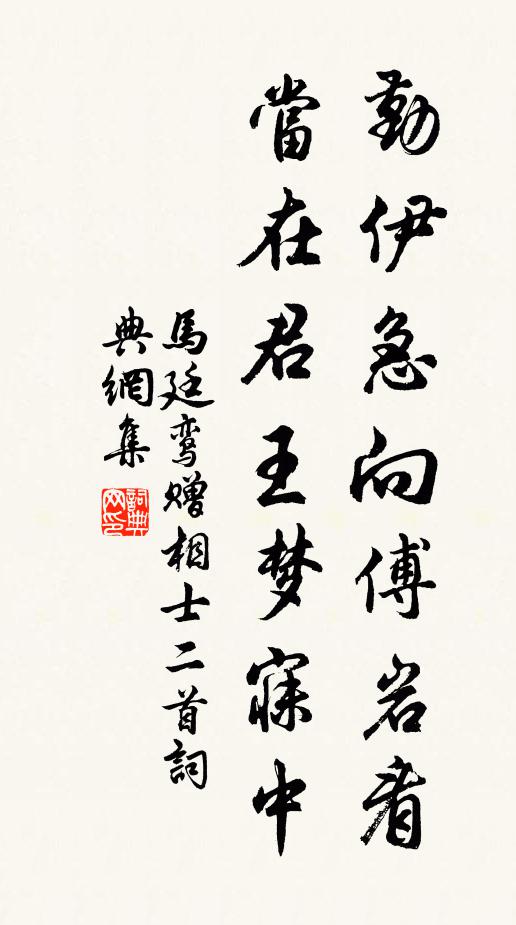 勤伊急向傅岩看
當在君王梦寐中
馬廷鸾赠相士二首詞
典網集
詞典网印